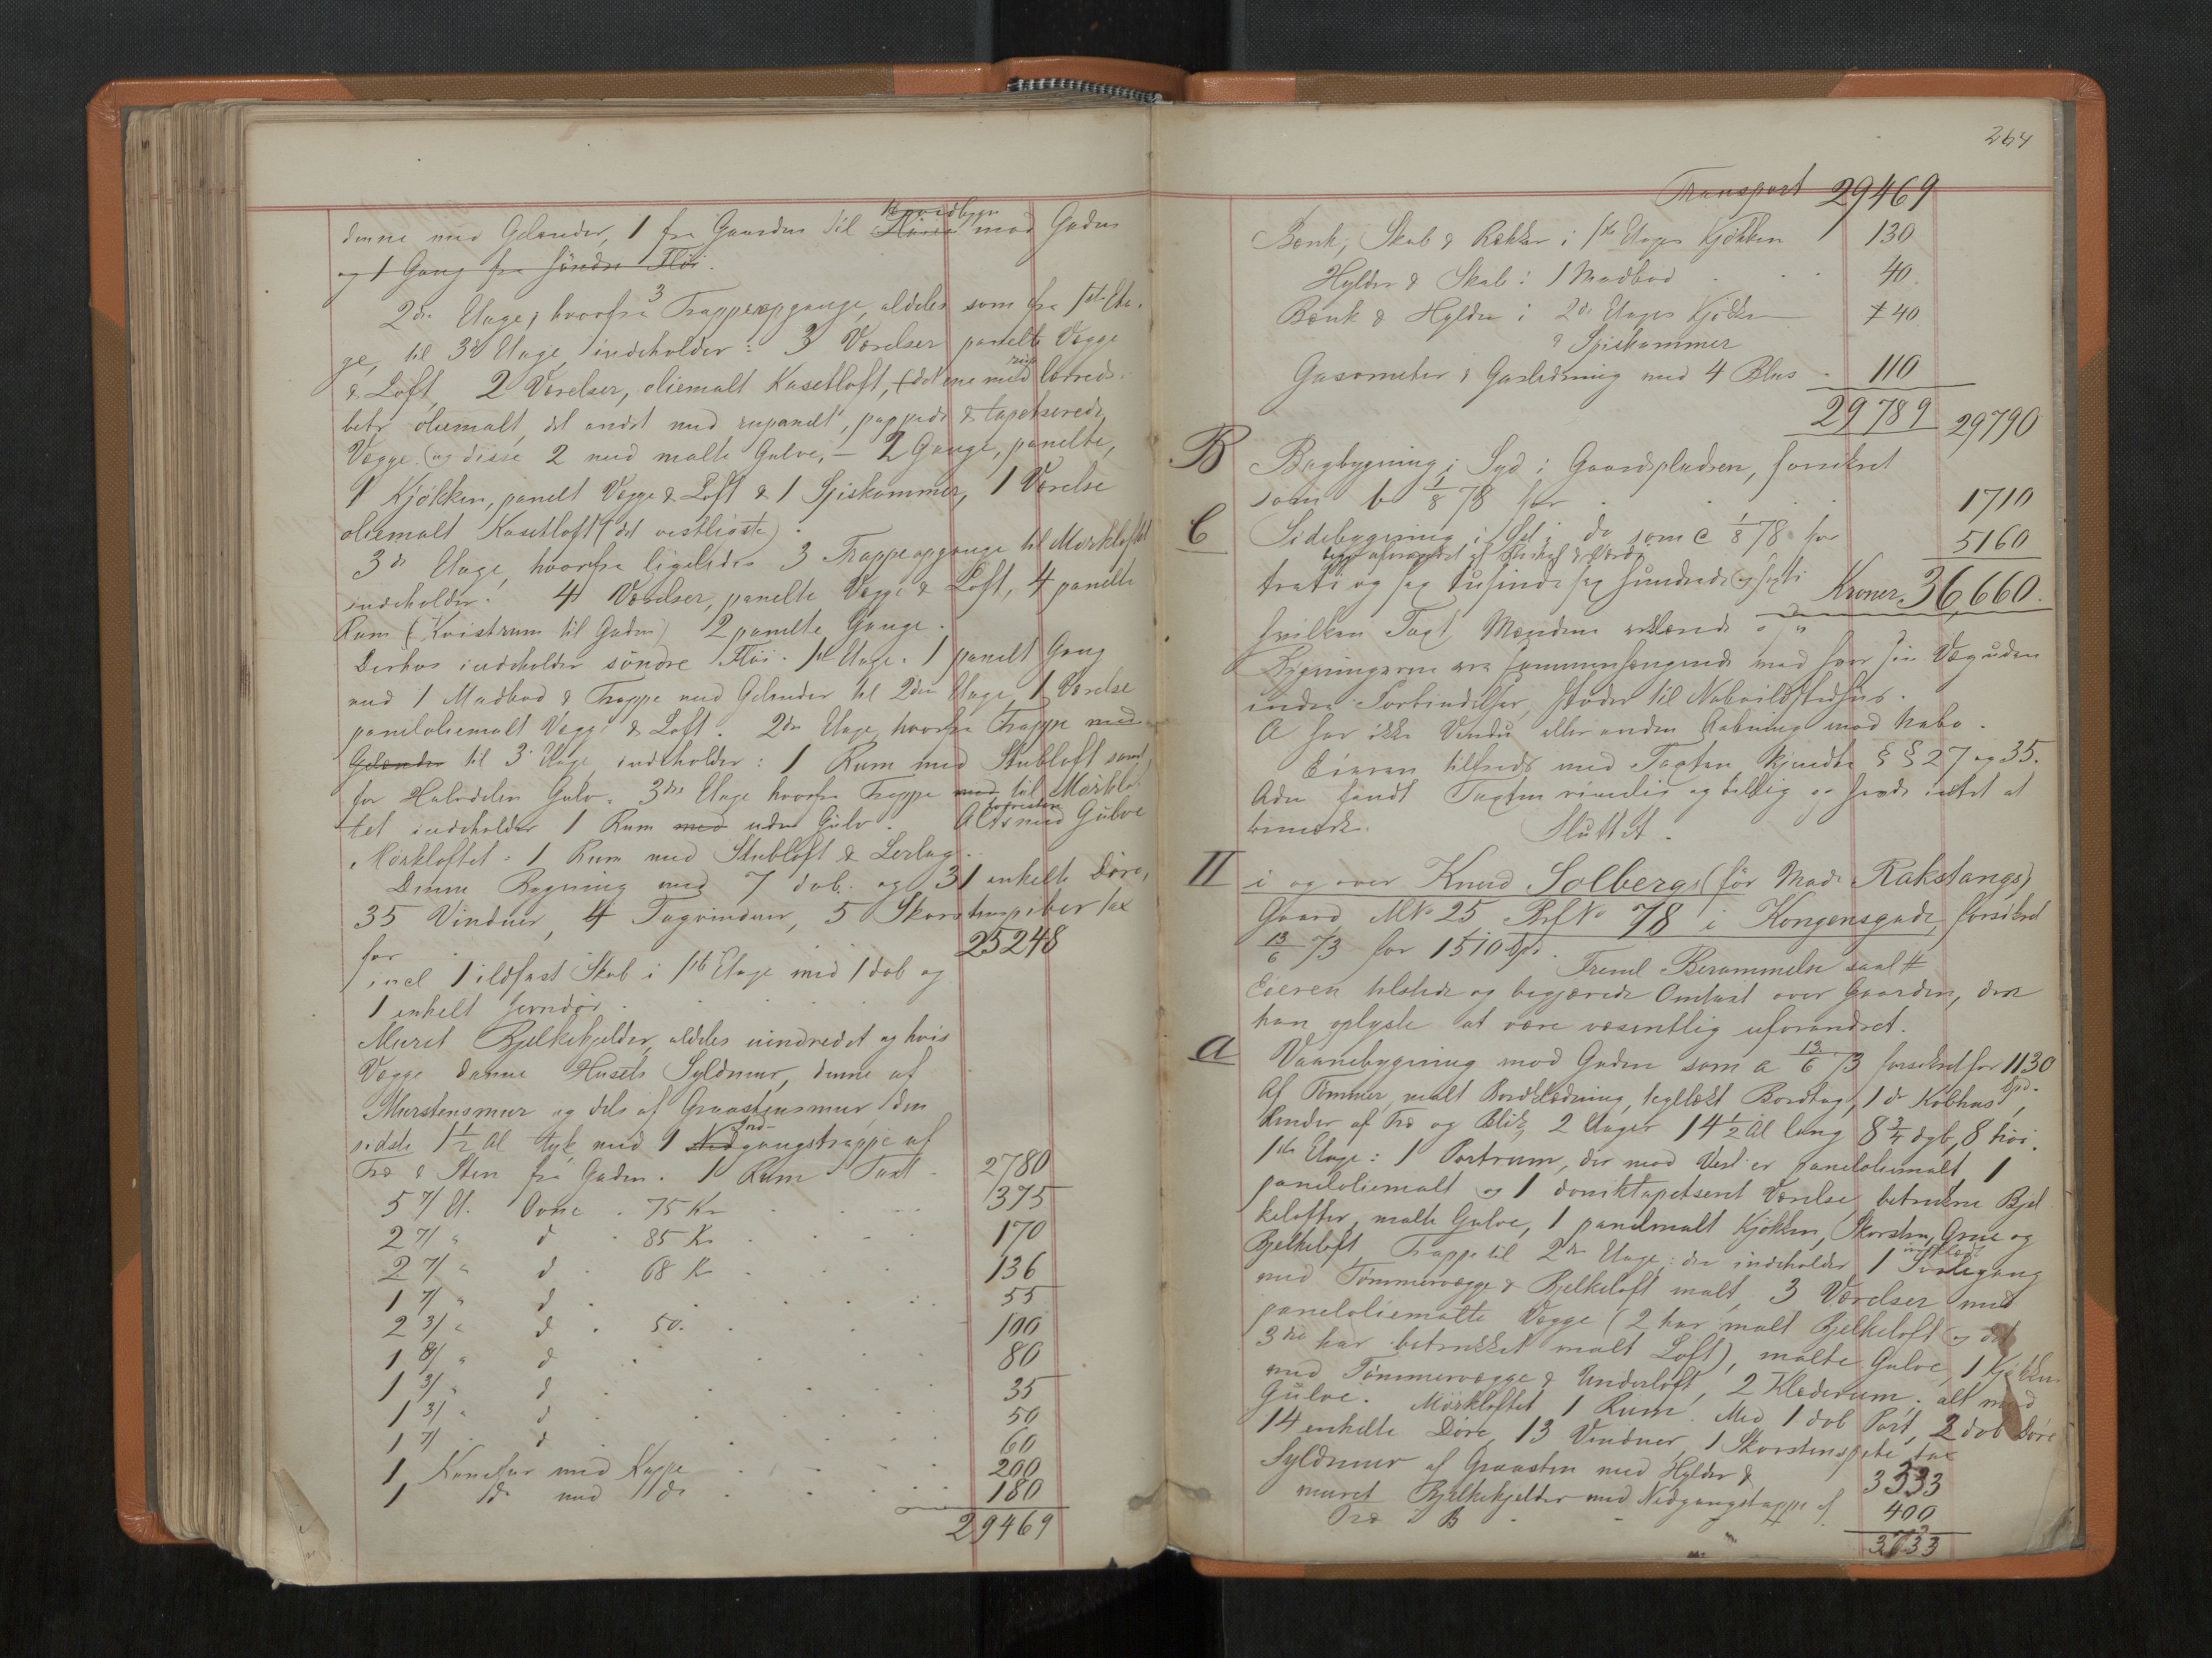 denne med Gelænder, 1 fra Gaarden til Hovedbygn mod Gaden
og 1 Gang fra søndre Fløi.
2den Etage, hvorfra 3 Trappeopgange, aldeles som fra 1ste Eta-
ge, til 3die Etage indeholder: 3 Værelser panelte Vægge
& Loft, 2 Værelser, oliemalt Kasetloft, (det ene med lærreds-
betr oliemalt, det andet med rupanelt, pappede & tapetserede
Vægge og disse 2 med malte Gulve, – 2 Gange, panelte,
1 Kjøkken, panelt Vægge & Loft & 1 Spiskammer, 1 Værelse
oliemalt Kasetloft (det vestligste)
3de Etage, hvorfra ligeledes 3 Trappeopgange til Mørkloftet
indeholder: 4 Værelser, panelte Vægge & Loft, 4 panelte
Rum (Kvistrum til Gaden) 2 panelte Gange.
Derhos indeholder søndre Fløi. 1ste Etage. 1 panelt Gang
med 1 Madbod & Trappe med Gelænder til 2den Etage, 1 Værelse
paneloliemalt Vægge & Loft. 2den Etage, hvorfra Trappe med
Gelænder til 3de Etage, indeholder: 1 Rum med Stubloft samt
for Halvdelen Gulv. 3die Etage hvorfra Trappe med til Mørklof-
tet indeholder 1 Rum med uden Gulv. Alt forresten med Gulve
Mørkloftet: 1 Rum med Stubloft & Lerlag.
Denne Bygning med 7 dob. og 31 enkelte Døre,
35 Vinduer, 4 Tagvinduer, 5 Skorstenspiber tax
for 25248
incl 1 ildfast Skab i 1ste Etage med 1 dob og
1 enkelt Jerndør.
Muret Bjelkekjelder, aldeles uindredet og hvis
Vægge danne Husets Syldmur, denne af
Murstensmur og dels af Graastensmur, den
sidste 1½ Al tyk, med 1 Nedgangstrappe af
Træ & Sten fra Gaden. 1 Rum Taxt 2780
5 7/ Et. Ovne . 75 Kr 375
2 7/ " d . 85 Kr 170
2 7/ " d . 68 Kr 136
1 7/ " d . 55
2 3/ " d . 50. 100
1 8/ " d 80
1 3/ " d 35
1 3/ " d 50
1 7/ " d 60
1 Komfur med Kappe 200
1 do med do 180
29469
264
Transport 29469
Bænk, Skab & Rækker i 1ste Etages Kjøkken 130
Hylder & Skab i 1 Madbod 40
Bænk & Hylder i 2den Etages Kjøkken 40
& Spiskammer
Gasometer & Gasledning med 4 Blus 110
29789 29790
B Bagbygning i Syd i Gaardspladsen, forsikret
som b 1/8 78 for 1710
C Sidebygning i do som c 1/8 78 for 5160
tredi og sex tusinde sex hundrede og sexti Kroner 36,660.
hvilken Taxt Mændene
Bygningerne ere sammenhængende med hver sin Væg uden
indre Forbindelser, støder til Naboildstedhus.
A har ikke Vindu eller anden Aabning mod Nabo.
Eieren tilfreds med Taxten kjendte §§ 27 og 35.
Adm fandt Taxten rimelig og billig og havde intet at
bemærke. Sluttet.
II i og over Knud Solbergs (før Mad. Rakstangs)
Gaard MNo 25 BrfNo 78 i Kongensgade, forsikret
13/6 73 for 1510 Spd.
Freml Berammelse saal #
Eieren tilstede og begjærede Omtaxt over Gaarden, den
han oplyste at være væsentlig uforandret.
A Vaanebygning mod Gaden som a 13/6 73 forsikret for 1130 Spd.
Af Tømmer, malt Bordklædning, tegltækt Bordtag, 1 do Kobhus,
Render af Træ og Blik, 2 Etager 14½ Al lang 8¾ dyb, 8 høi.
1ste Etage: 1 Portrum, der mod Vest er paneloliemalt 1
paneloliemalt og 1 domiktapetseret Værelse betrukne Bjel-
kelofter, malte Gulve, 1 panelmalt Kjøkken, Skorsten, Grue og
Bjelkeloft. Trappe til 2den Etage; der indeholder 1 Svalegang
med Tømmervægge & Bjelkeloft malt, 3 Værelser med
paneloliemalte Vægge (2 har malt Bjelkeloft og det
3die har betrukket malt Loft), malte Gulve, 1 Kjøkken
med Tømmervægge & Underloft, 2 Klæderum; alt med
Gulve. Mørkloftet 1 Rum. Med 1 dob Port, 2 dob Døre
14 enkelte Døre, 13 Vinduer, 1 Skorstenspibe, tax
Syldmur af Graasten med Hylder & 3333
muret Bjelkekjelder med Nedgangstrappe af
Træ 400
3733